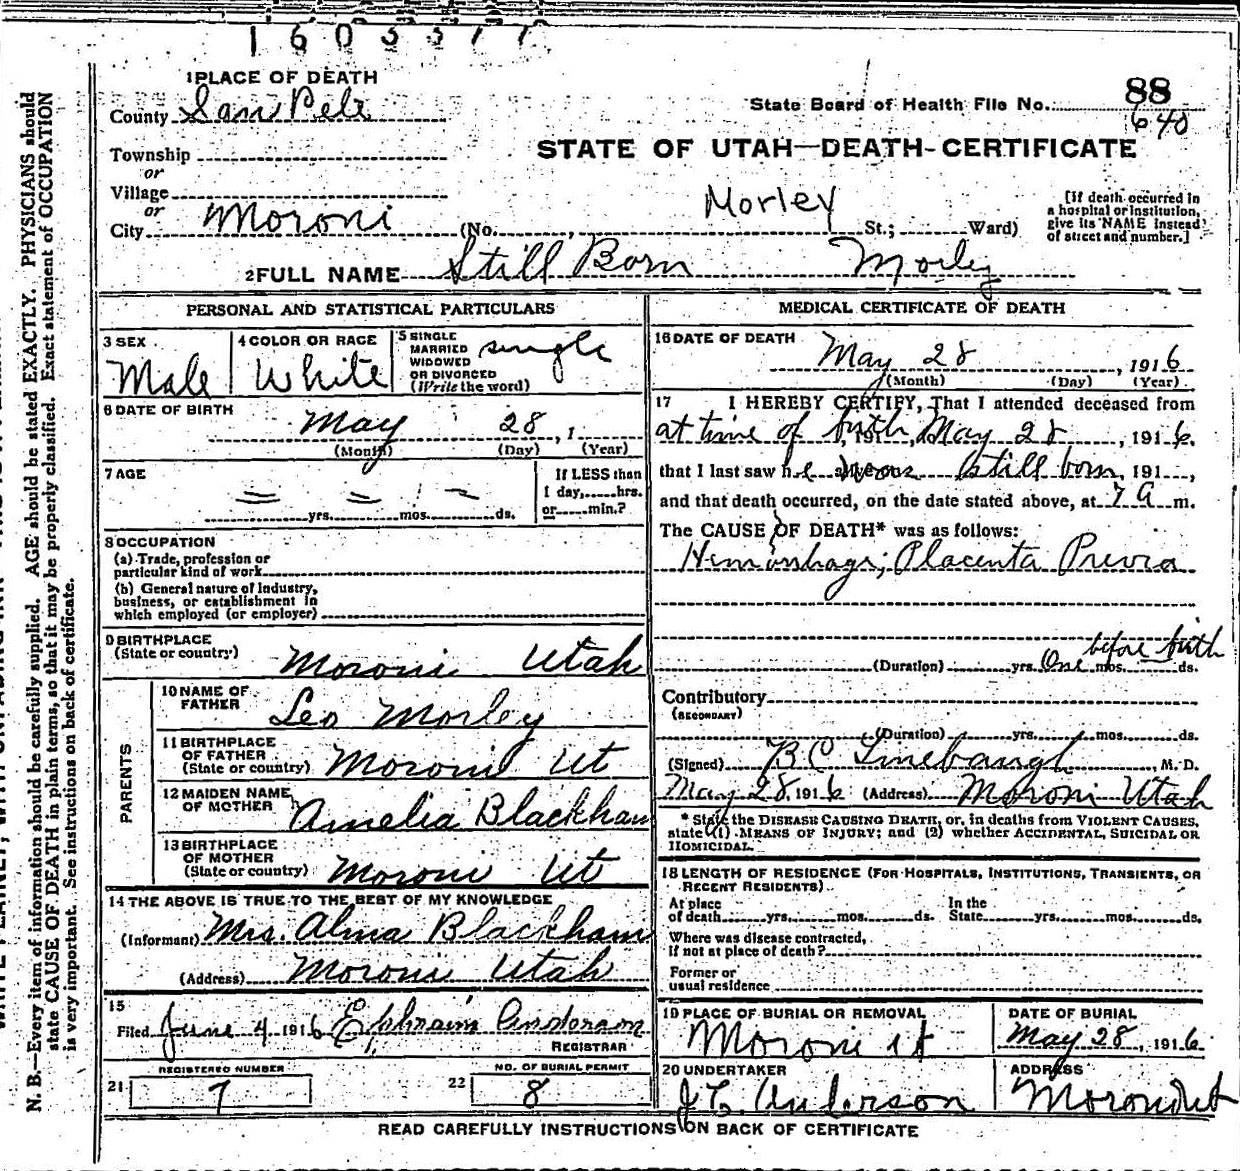 1603377
1 PLACE OF DEATH
County San Pete
State Board of Health File No. 88
640
Township
or
Village
or
City Moroni (No. , Morley St.; Ward)
STATE OF UTAH—DEATH-CERTIFICATE
[If death occurred in
a hospital or institution,
give its NAME instead
of street and number.]
2 FULL NAME Still Born Morley
PERSONAL AND STATISTICAL PARTICULARS
3 SEX
Male
4 COLOR OR RACE
White
5 SINGLE
MARRIED
WIDOWED
OR DIVORCED
(Write the word)
single
6 DATE OF BIRTH
May 28 , 1
(Month) (Day) (Year)
7 AGE
yrs. mos. ds.
If LESS than
1 day, hrs.
or min.?
8 OCCUPATION
(a) Trade, profession or
particular kind of work
(b) General nature of industry,
business, or establishment in
which employed (or employer)
9 BIRTHPLACE
(State or country)
Moroni Utah
PARENTS
10 NAME OF
FATHER
Leo Morley
11 BIRTHPLACE
OF FATHER
(State or country)
Moroni Ut
12 MAIDEN NAME
OF MOTHER
Amelia Blackham
13 BIRTHPLACE
OF MOTHER
(State or country)
Moroni Ut
14 THE ABOVE IS TRUE TO THE BEST OF MY KNOWLEDGE
(Informant) Mrs. Alma Blackham
(Address) Moroni Utah
15
Filed June 4 1916 Ephraim
REGISTRAR
21 REGISTERED NUMBER
7
22 NO. OF BURIAL PERMIT
8
MEDICAL CERTIFICATE OF DEATH
16 DATE OF DEATH
May 28 , 1916
(Month) (Day) (Year)
17 I HEREBY CERTIFY, That I attended deceased from
at time of birth, 191 , May 28 , 1916,
that I last saw h e alive on was still born, 191 ,
and that death occurred, on the date stated above, at 7 a m.
The CAUSE OF DEATH* was as follows:
Hemorrhage; Placenta Previa
before birth
(Duration) yrs. One mos. ds.
Contributory
(SECONDARY)
(Duration) yrs. mos. ds.
(Signed) B C Linebaugh, M. D.
May 28, 1916 (Address) Moroni Utah
* State the DISEASE CAUSING DEATH, or, in deaths from VIOLENT CAUSES,
state (1) MEANS OF INJURY; and (2) whether ACCIDENTAL, SUICIDAL OR
HOMICIDAL.
18 LENGTH OF RESIDENCE (FOR HOSPITALS, INSTITUTIONS, TRANSIENTS, OR
RECENT RESIDENTS).
At place
of death yrs. mos. ds.
In the
State yrs. mos. ds.
Where was disease contracted,
if not at place of death?
Former or
usual residence
19 PLACE OF BURIAL OR REMOVAL
Moroni ut
DATE OF BURIAL
May 28, 1916
20 UNDERTAKER
J E Anderson
ADDRESS
Moroni Ut
READ CAREFULLY INSTRUCTIONS ON BACK OF CERTIFICATE
N. B.—Every item of information should be carefully supplied. AGE should be stated EXACTLY. PHYSICIANS should
state CAUSE OF DEATH in plain terms, so that it may be properly classified. Exact statement of OCCUPATION
is very important. See instructions on back of certificate.